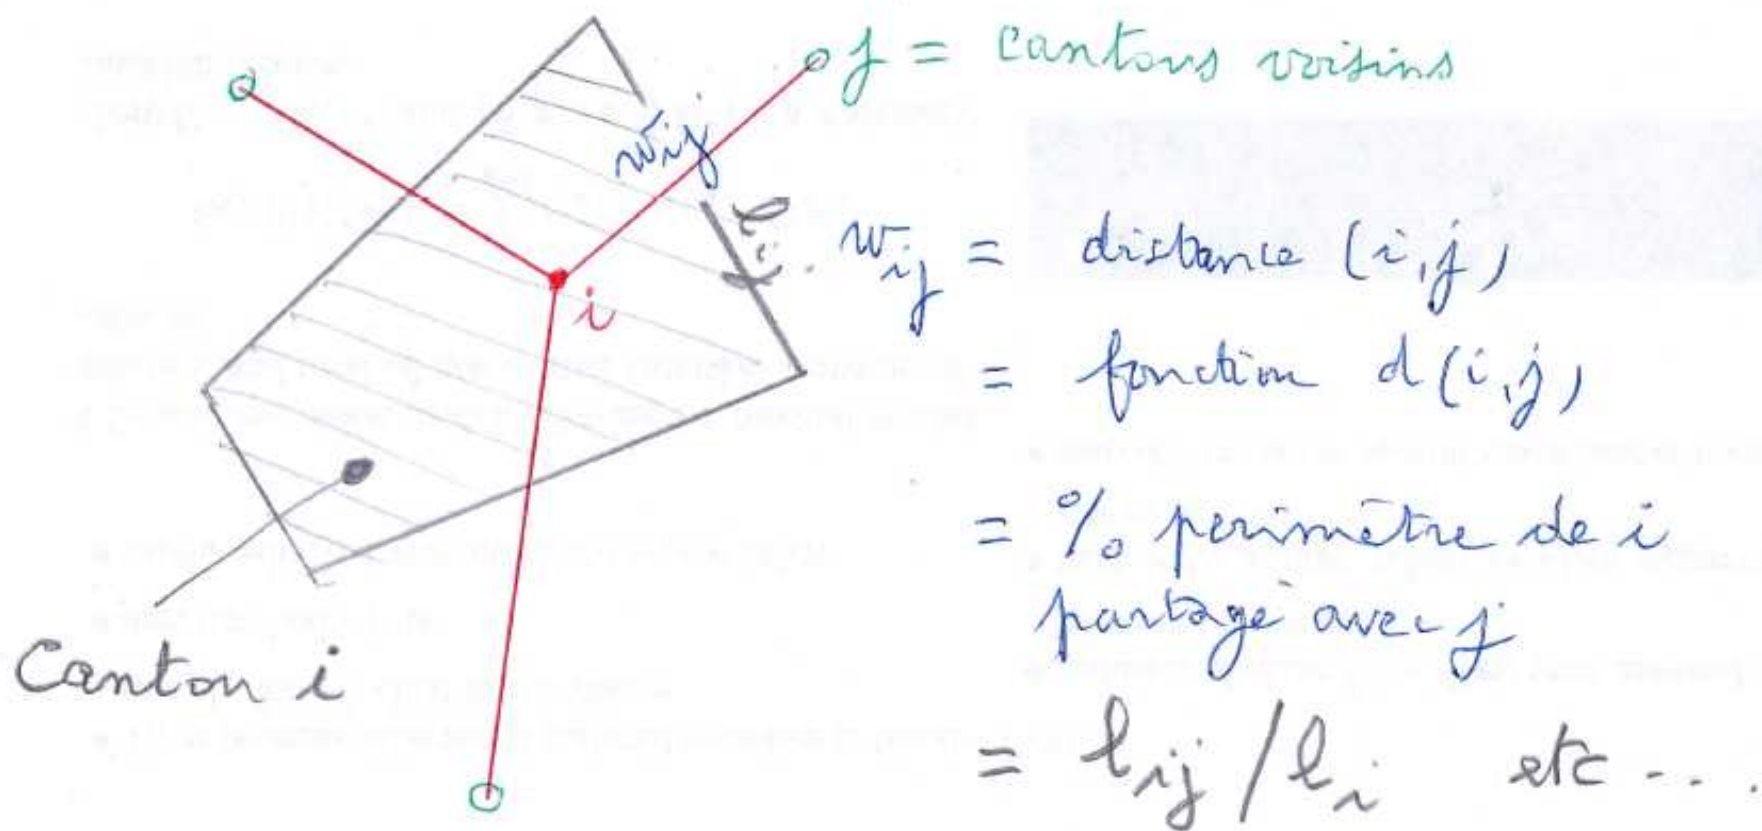 j = cantons voisins
wij
lij
wij = distance (i,j)
i
= fonction d(i,j)
= % perimètre de i
partagé avec j
Canton i
= lij / li etc ...